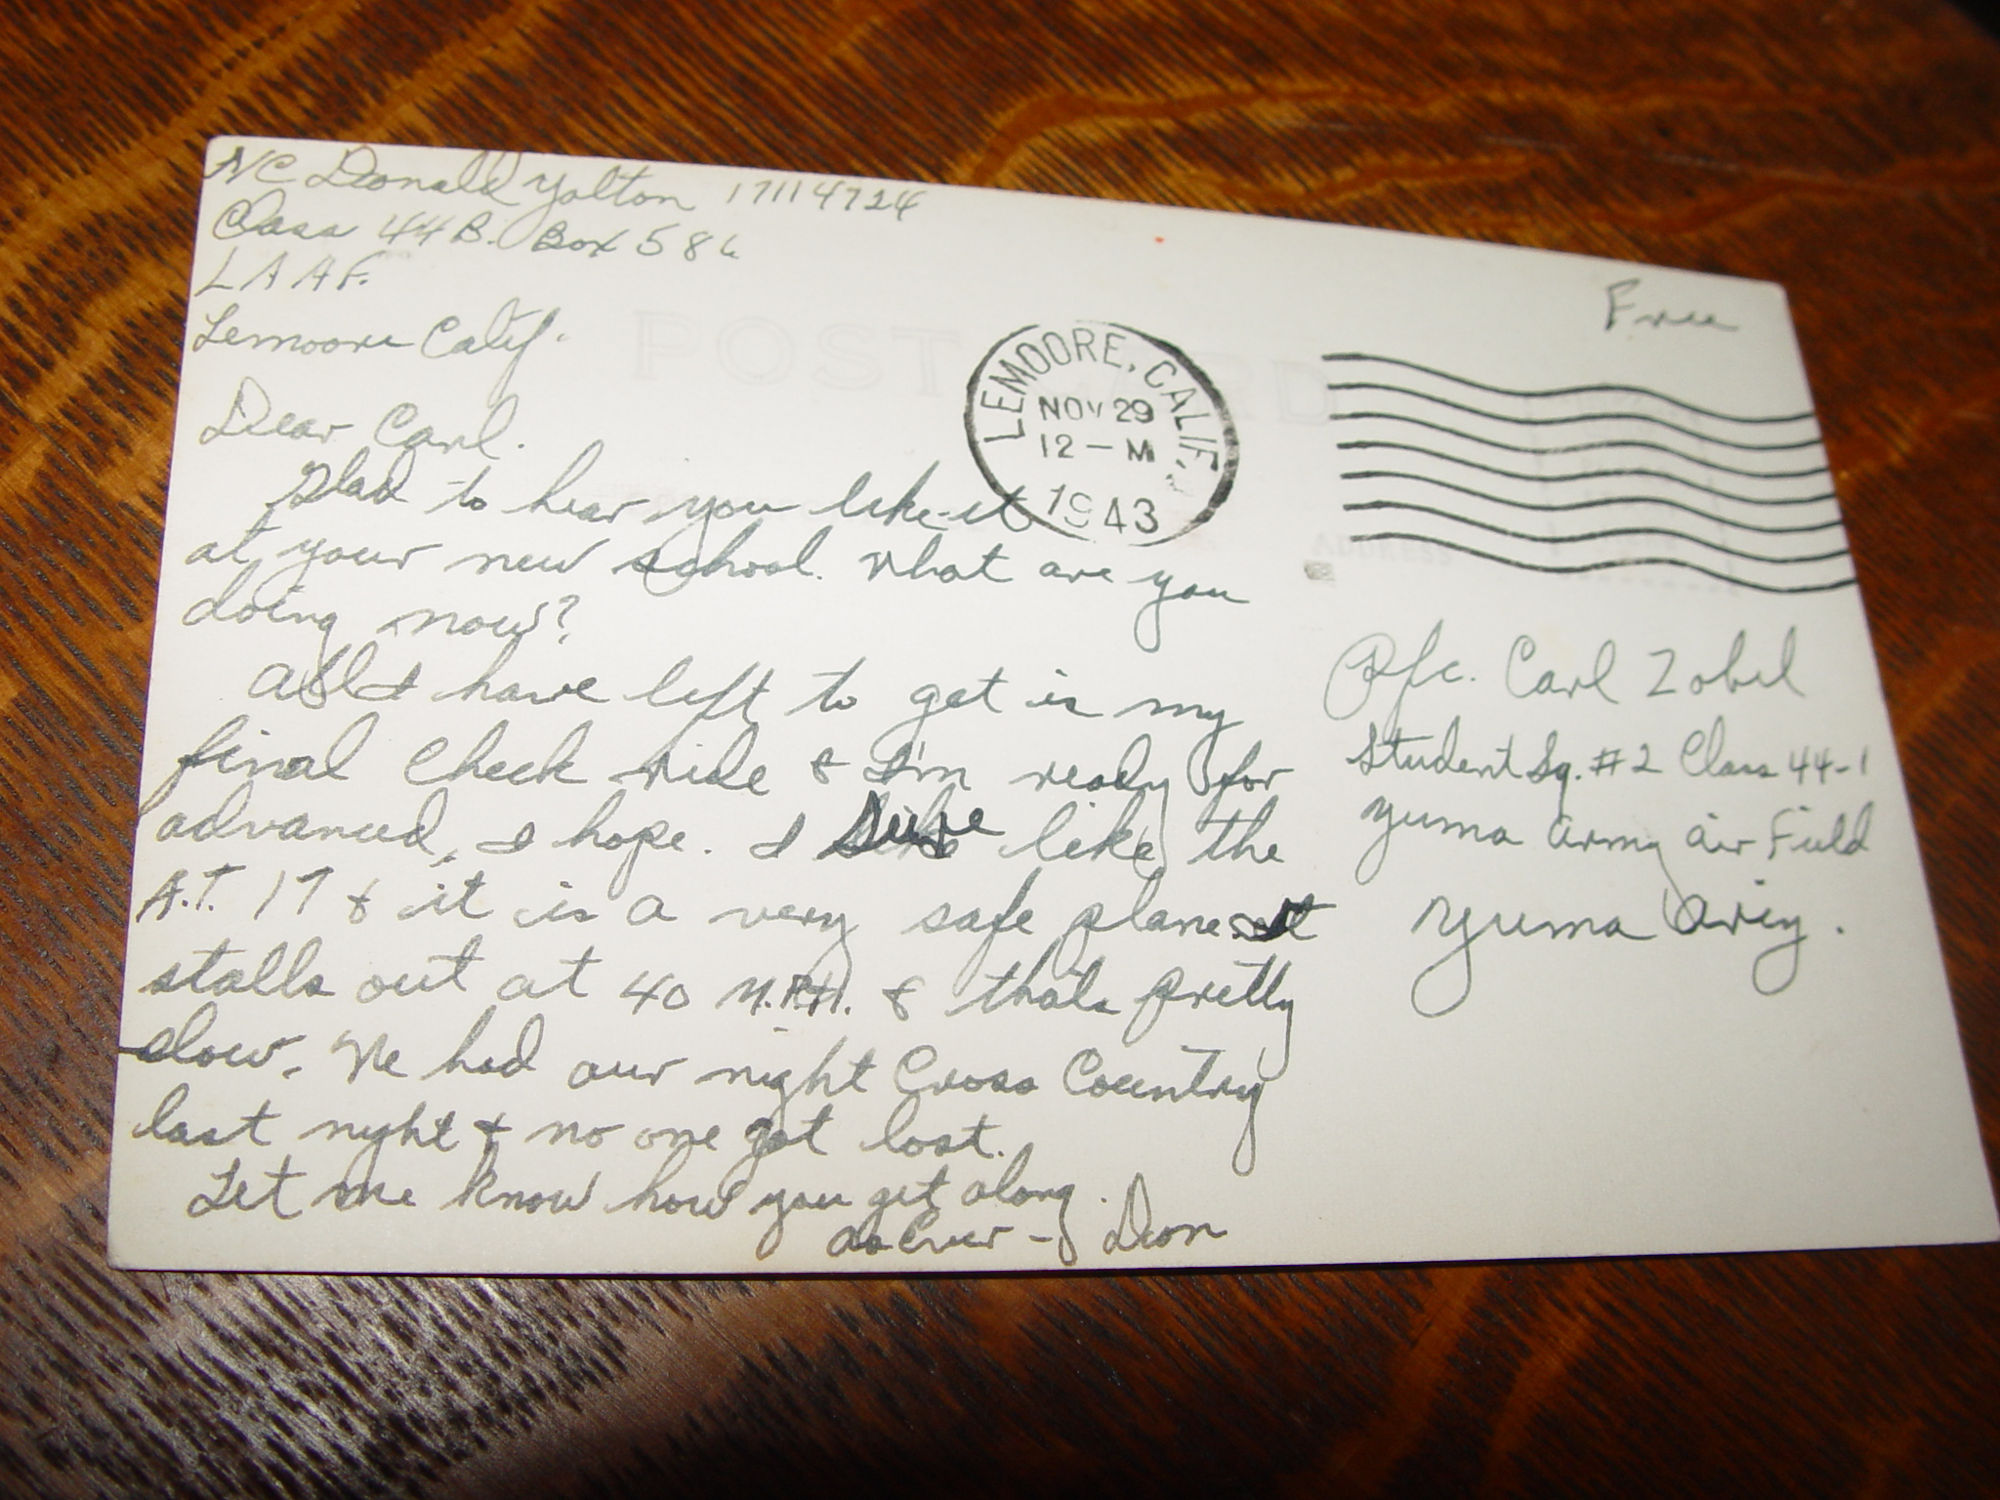 A/C Donald Yolton 17114724
Class 44B. Box 586
LAAF.
Lemoore Calif.
Free
POST CARD
LEMOORE, CALIF.
NOV 29
12 - M
1943
ADDRESS
Dear Carl.
Glad to hear you like it
at your new school. What are you
doing now?
All I have left to get is my
final check ride & I'm ready for
advanced, I hope. I sure like the
A.T. 17 & it is a very safe plane. It
stalls out at 40 M.P.H. & thats pretty
slow. We had our night Cross Country
last night & no one got lost.
Let me know how you get along.
As Ever - Don
Pfc. Carl Zobel
Student Sq. #2 Class 44-1
Yuma Army Air Field
Yuma Ariz.